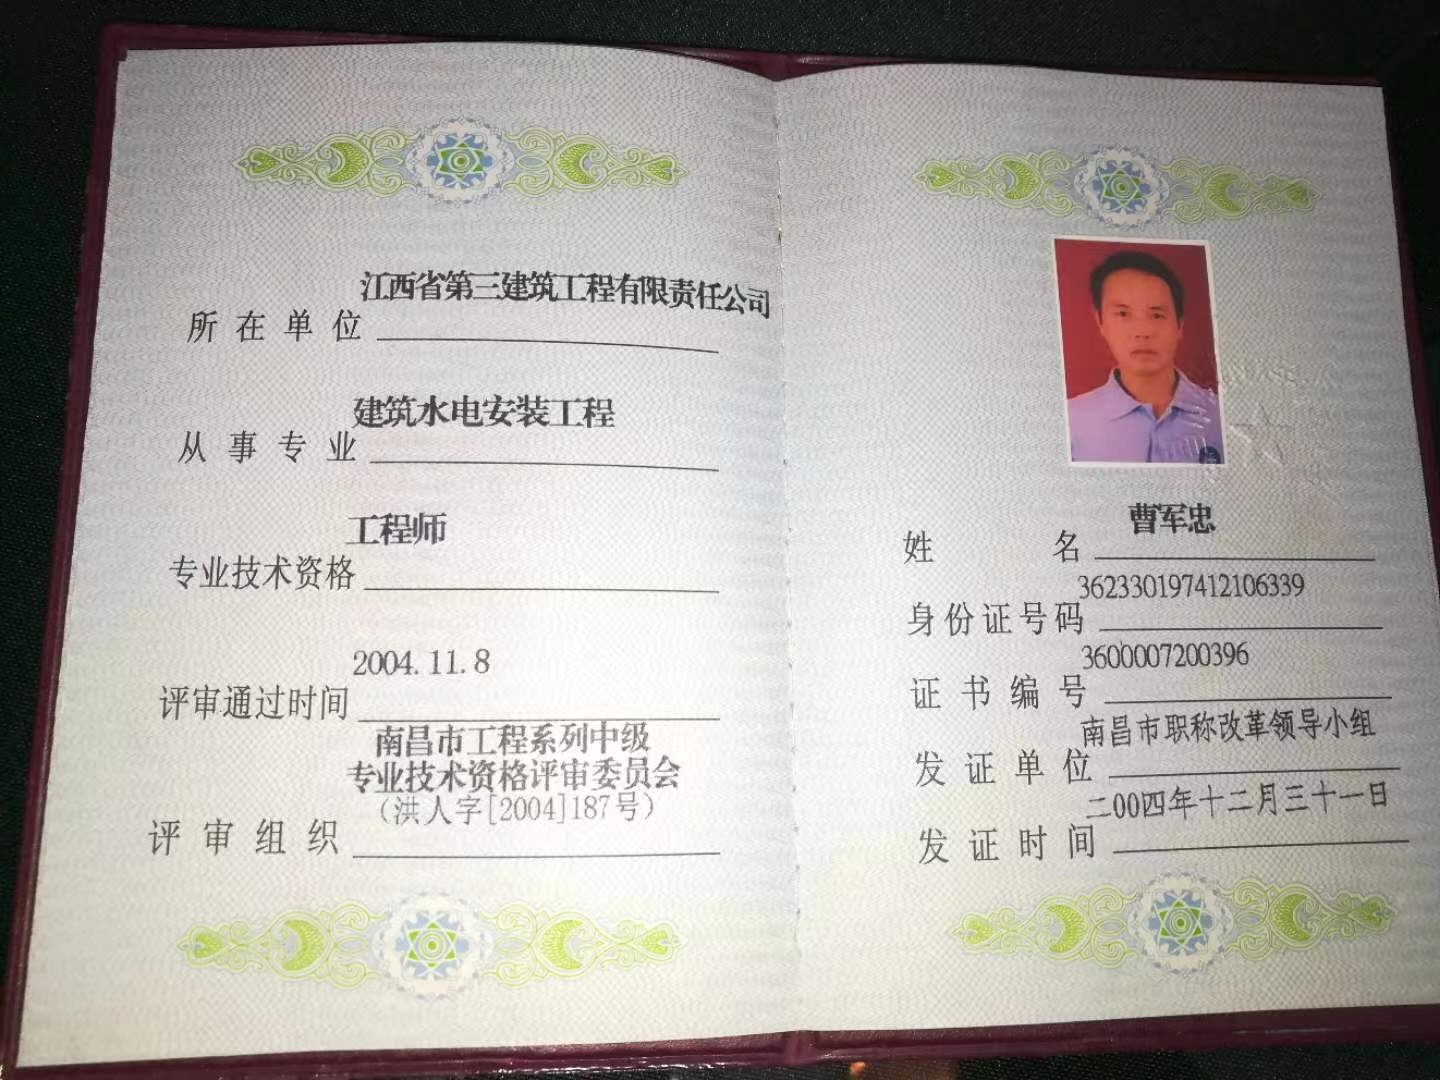 江西省第三建筑工程有限责任公司
所在单位
建筑水电安装工程
从事专业
工程师
专业技术资格
2004.11.8
评审通过时间
南昌市工程系列中级
专业技术资格评审委员会
（洪人字[2004]187号）
评审组织
曹军忠
姓名
362330197412106339
身份证号码
3600007200396
证书编号
南昌市职称改革领导小组
发证单位
二00四年十二月三十一日
发证时间